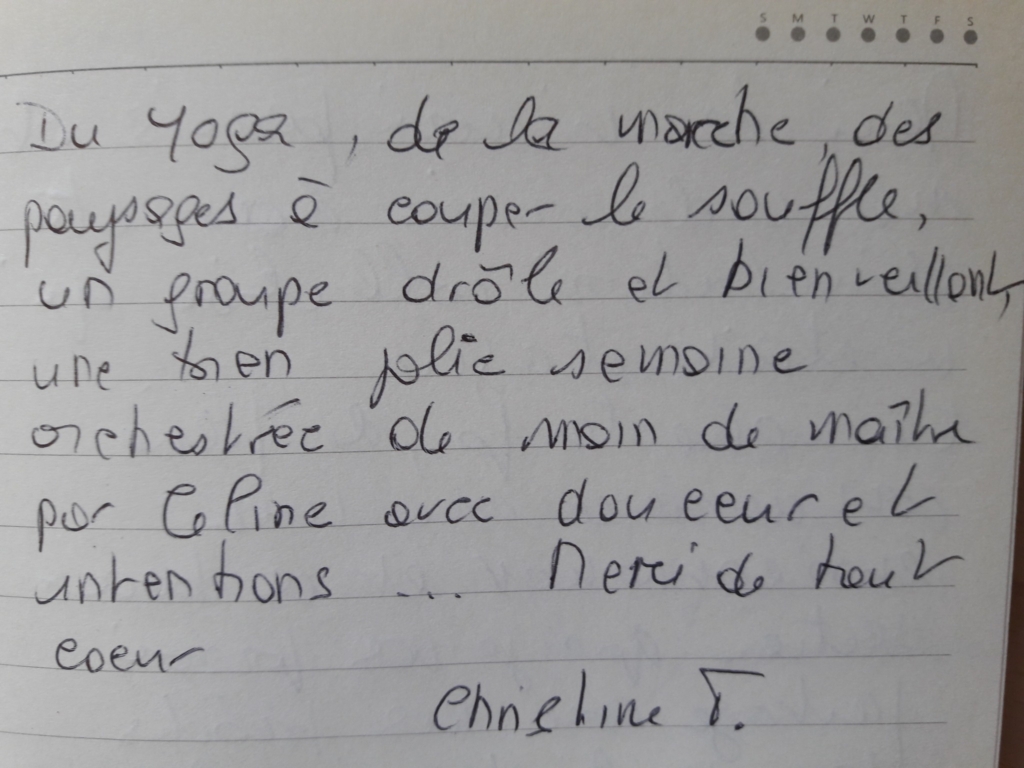 S M T W T F S
Du Yoga, de la marche, des
paysages à couper le souffle,
un groupe drôle et bienveillant,
une bien jolie semaine
orchestrée de main de maître
par Celine avec douceur et
intentions ... Merci de tout
coeur
Christine T.